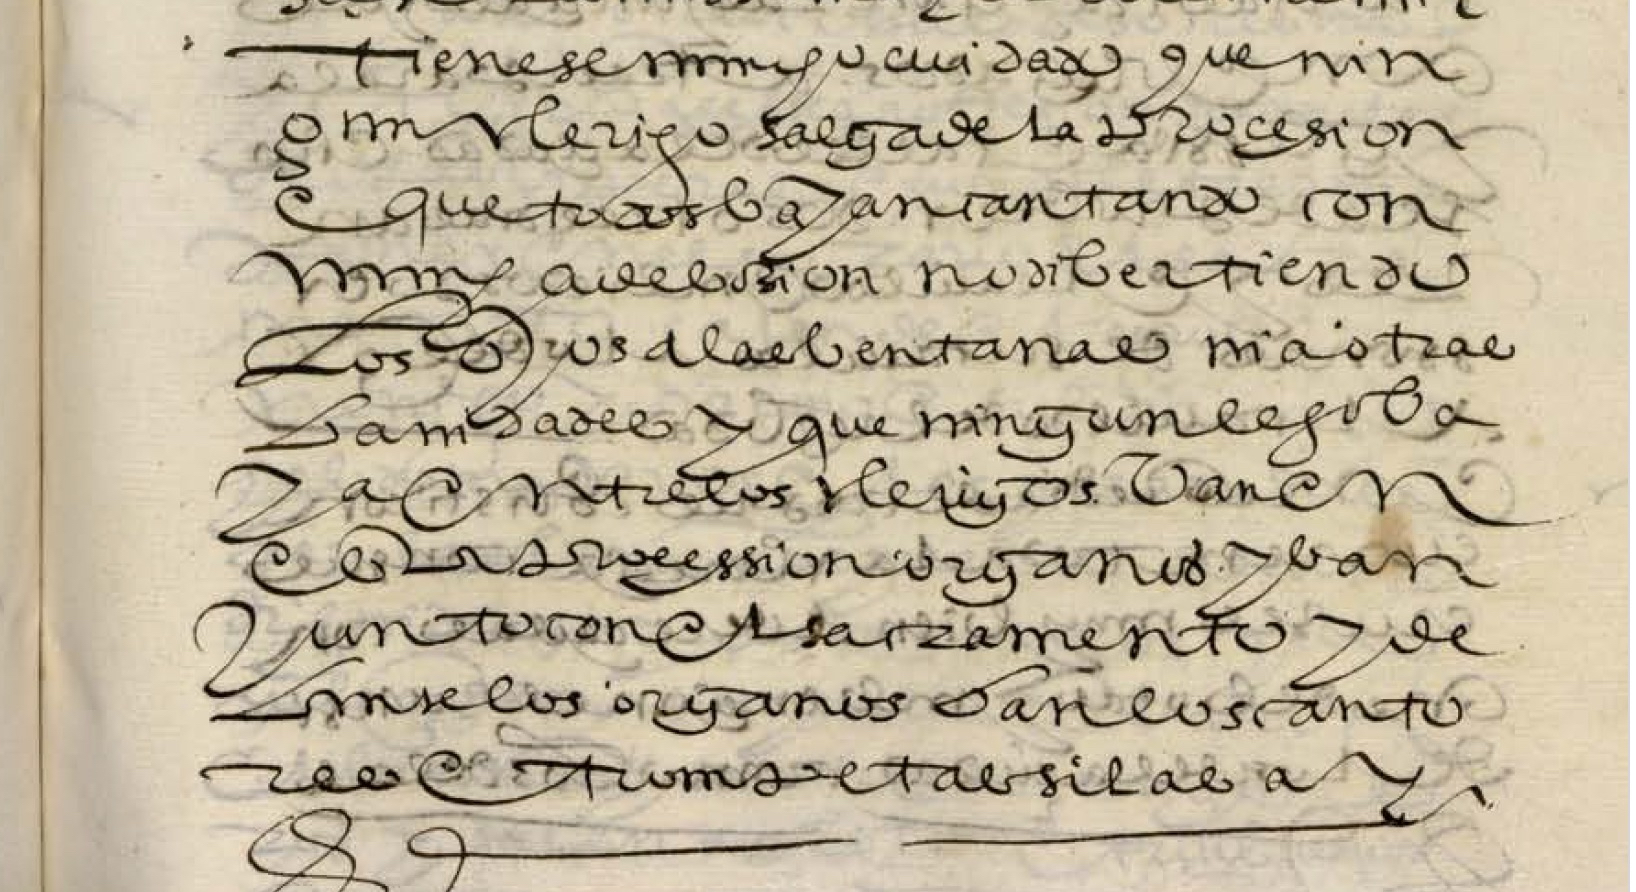 tienese mucho cuidado que nin
gun clerigo salga de la procesion
e que todos bayan cantando con
mucha debosion no dibertiendo
los ojos a las bentanas ni a otras
banidades y que ningun lego ba
ya entre los clerigos van en
la procession organos y ban
junto con el sacramento y de
los organos ban los canto
res e trompetas si las ay